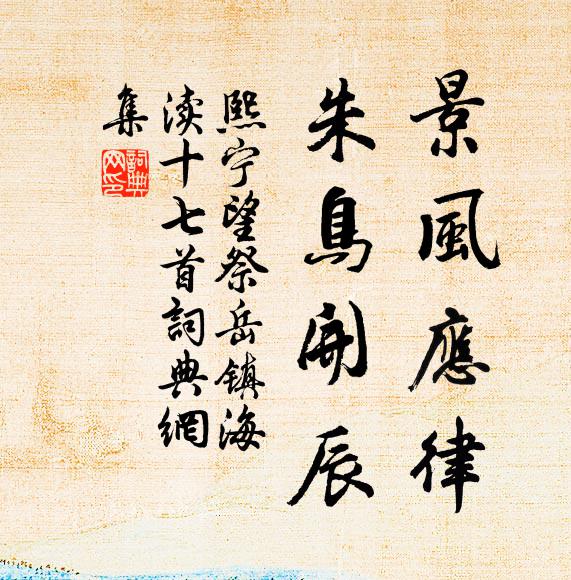 景風應律
朱鳥開辰
熙宁望祭岳镇海
渎十七首詞典網
集
詞典網印